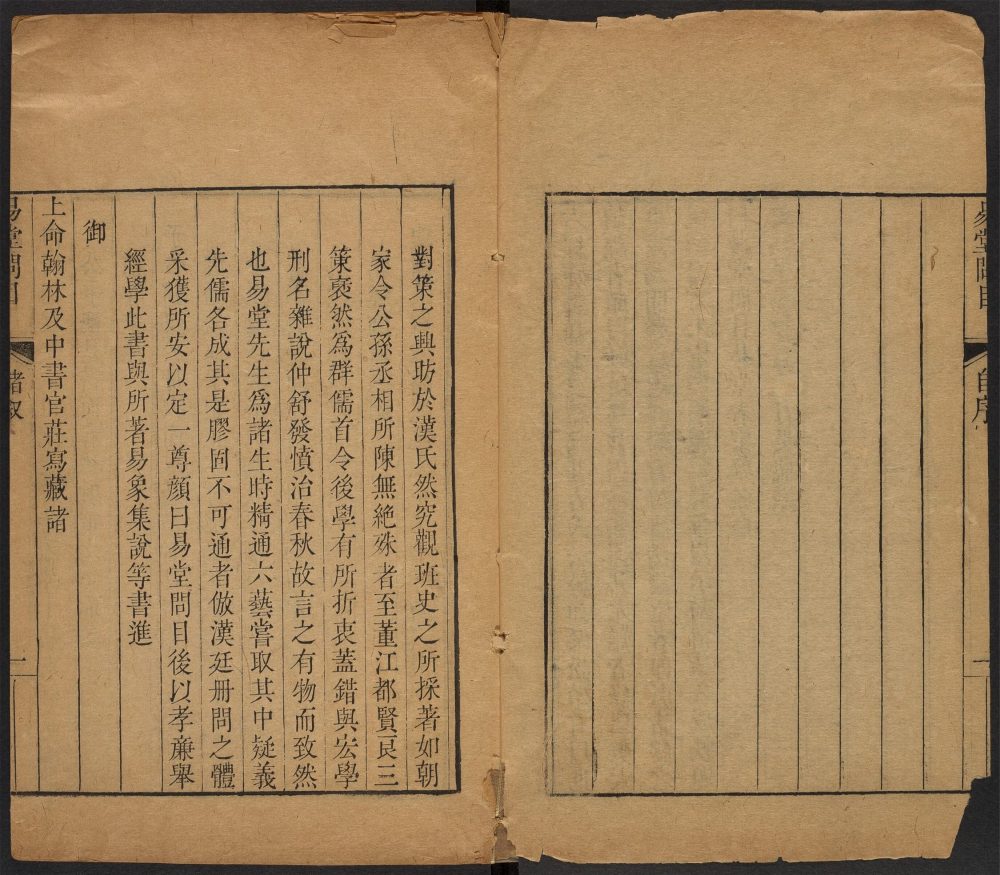 易堂問目
自序
對策之興昉於漢氏然究觀班史之所採著如朝
家令公孫丞相所陳無絶殊者至董江都賢良三
策裒然爲群儒首令後學有所折衷蓋錯與宏學
刑名雜說仲舒發憤治春秋故言之有物而致然
也易堂先生爲諸生時精通六藝嘗取其中疑義
先儒各成其是膠固不可通者倣漢廷冊問之體
采獲所安以定一尊顔曰易堂問目後以孝亷舉
經學此書與所著易象集說等書進
御
上命翰林及中書官莊寫藏諸
易堂問目
諸叙
一